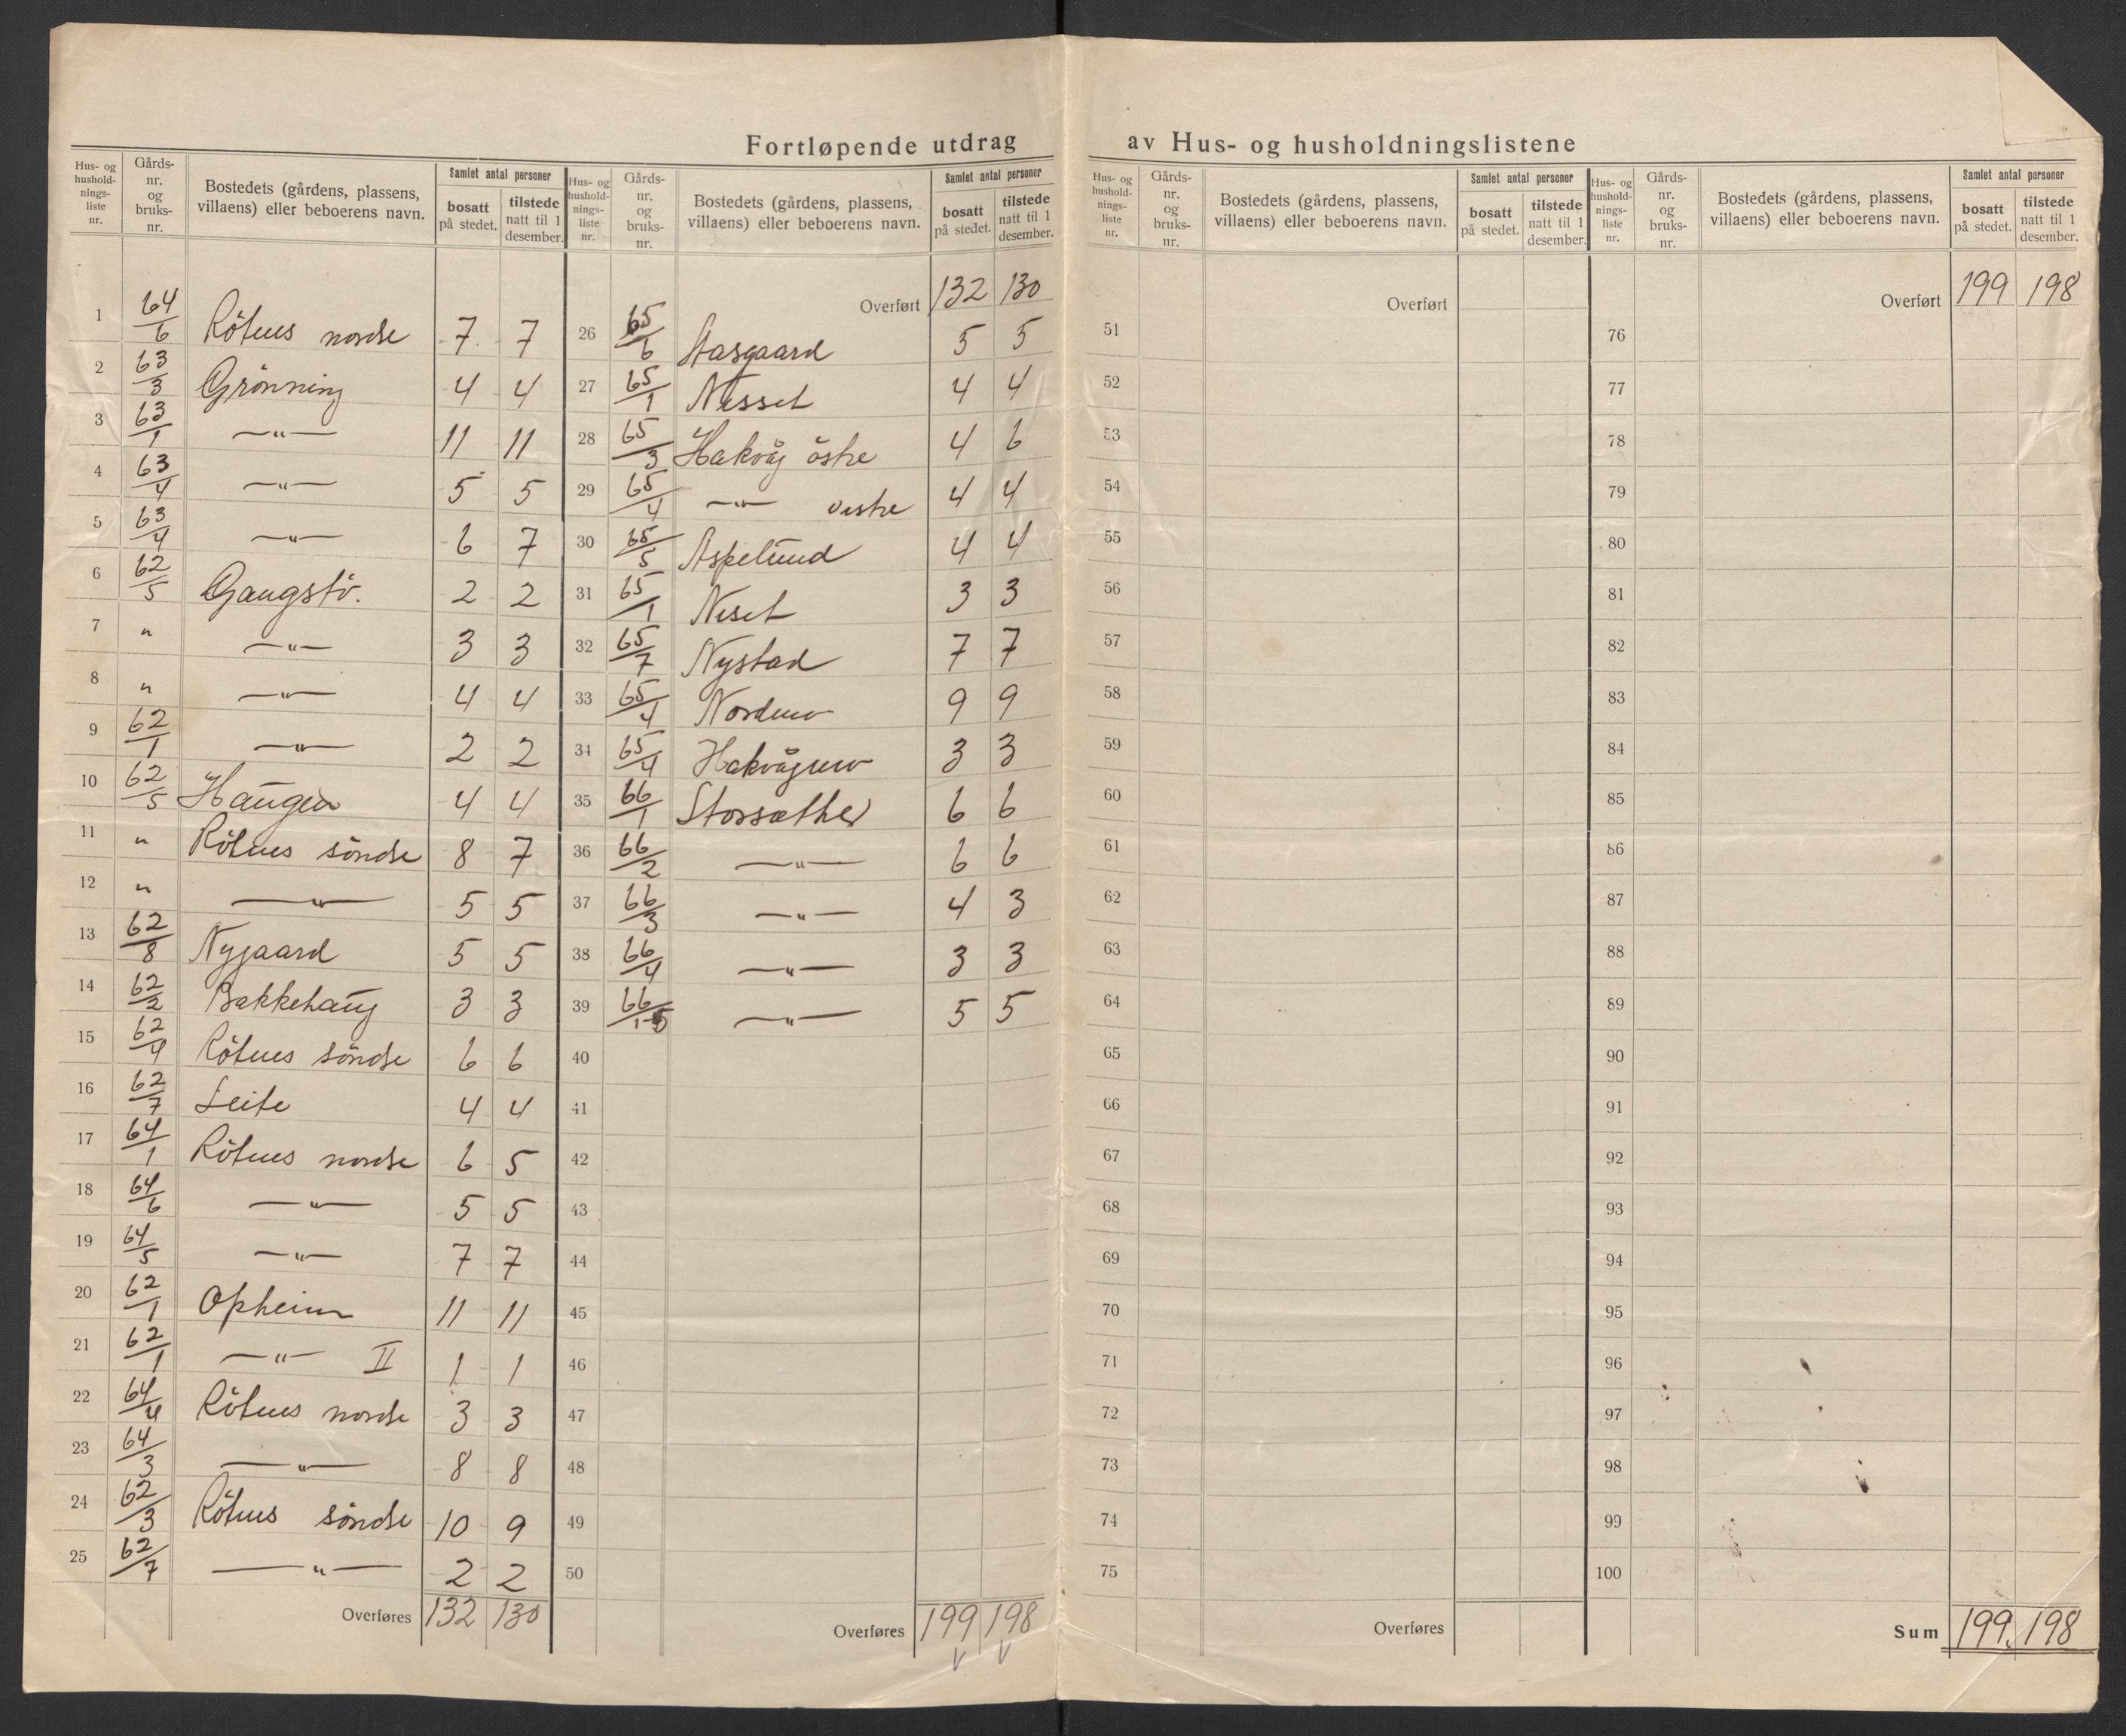 Fortløpende utdrag av Hus- og husholdningslistene
Hus- og husholdnings-liste nr. | Gårds-nr. og bruks-nr. | Bostedets (gårdens, plassens, villaens) eller beboerens navn. | Samlet antal personer bosatt på stedet. | tilstede natt til 1 desember.
1 64/6 Rötnes nordre 7 7
2 63/3 Grönning 4 4
3 63/1 —"— 11 11
4 63/4 —"— 5 5
5 63/4 —"— 6 7
6 62/5 Gangstö. 2 2
7 " —"— 3 3
8 " —"— 4 4
9 62/1 —"— 2 2
10 62/5 Haugen 4 4
11 " Rötnes söndre 8 7
12 " —"— 5 5
13 62/8 Nygaard 5 5
14 62/2 Bakkehaug 3 3
15 62/4 Rötnes söndre 6 6
16 62/7 Leite 4 4
17 64/1 Rötnes nordre 6 5
18 64/6 —"— 5 5
19 64/5 —"— 7 7
20 62/1 Opheim 11 11
21 62/1 —"— II 1 1
22 64/4 Rötnes nordre 3 3
23 64/3 —"— 8 8
24 62/3 Rötnes söndre 10 9
25 62/7 —"— 2 2
Overføres 132 130
Hus- og husholdnings-liste nr. | Gårds-nr. og bruks-nr. | Bostedets (gårdens, plassens, villaens) eller beboerens navn. | Samlet antal personer bosatt på stedet. | tilstede natt til 1 desember.
Overført 132 130
26 65/6 Aasgaard 5 5
27 65/1 Nesset 4 4
28 65/3 Hakvåg östre 4 6
29 65/4 —"— vestre 4 4
30 65/5 Aspelund 4 4
31 65/1 Neset 3 3
32 65/7 Nystad 7 7
33 65/4 Nordmo 9 9
34 65/4 Hakvågmo 3 3
35 66/1 Storsæther 6 6
36 66/2 —"— 6 6
37 66/3 —"— 4 3
38 66/4 —"— 3 3
39 66/1-5 —"— 5 5
40
41
42
43
44
45
46
47
48
49
50
Overføres 199 198
Hus- og husholdnings-liste nr. | Gårds-nr. og bruks-nr. | Bostedets (gårdens, plassens, villaens) eller beboerens navn. | Samlet antal personer bosatt på stedet. | tilstede natt til 1 desember.
Overført
51
52
53
54
55
56
57
58
59
60
61
62
63
64
65
66
67
68
69
70
71
72
73
74
75
Overføres
Hus- og husholdnings-liste nr. | Gårds-nr. og bruks-nr. | Bostedets (gårdens, plassens, villaens) eller beboerens navn. | Samlet antal personer bosatt på stedet. | tilstede natt til 1 desember.
Overført 199 198
76
77
78
79
80
81
82
83
84
85
86
87
88
89
90
91
92
93
94
95
96
97
98
99
100
Sum 199 198